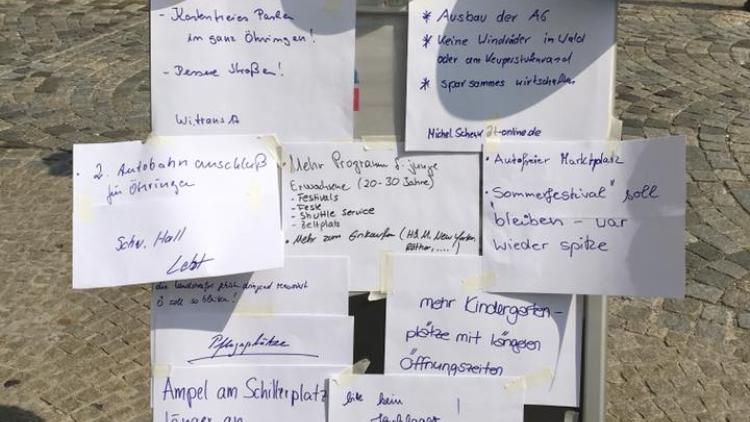 - Kostenfreies Parken
in ganz Öhringen!
- Bessere Straßen!
* Ausbau der A6
* Keine Windräder im Wald
oder am Keuperstufenrand
* sparsames wirtschaften
- 2. Autobahnanschluß
für Öhringen
Schw. Hall
Lebt
• Mehr Programm f. junge
Erwachsene (20-30 Jahre)
- Festivals
- Feste
- Shuttle service
- Zeltplatz
• Mehr zum Einkaufen (H&M, New Yorker,
• Autofreier Marktplatz
• "Sommerfestival" soll
bleiben - war
wieder spitze
die Landstraße
soll so bleiben!
Pflegeplätze
mehr Kindergarten-
plätze mit längeren
Öffnungszeiten
Ampel am Schillerplatz
länger an
bitte kein